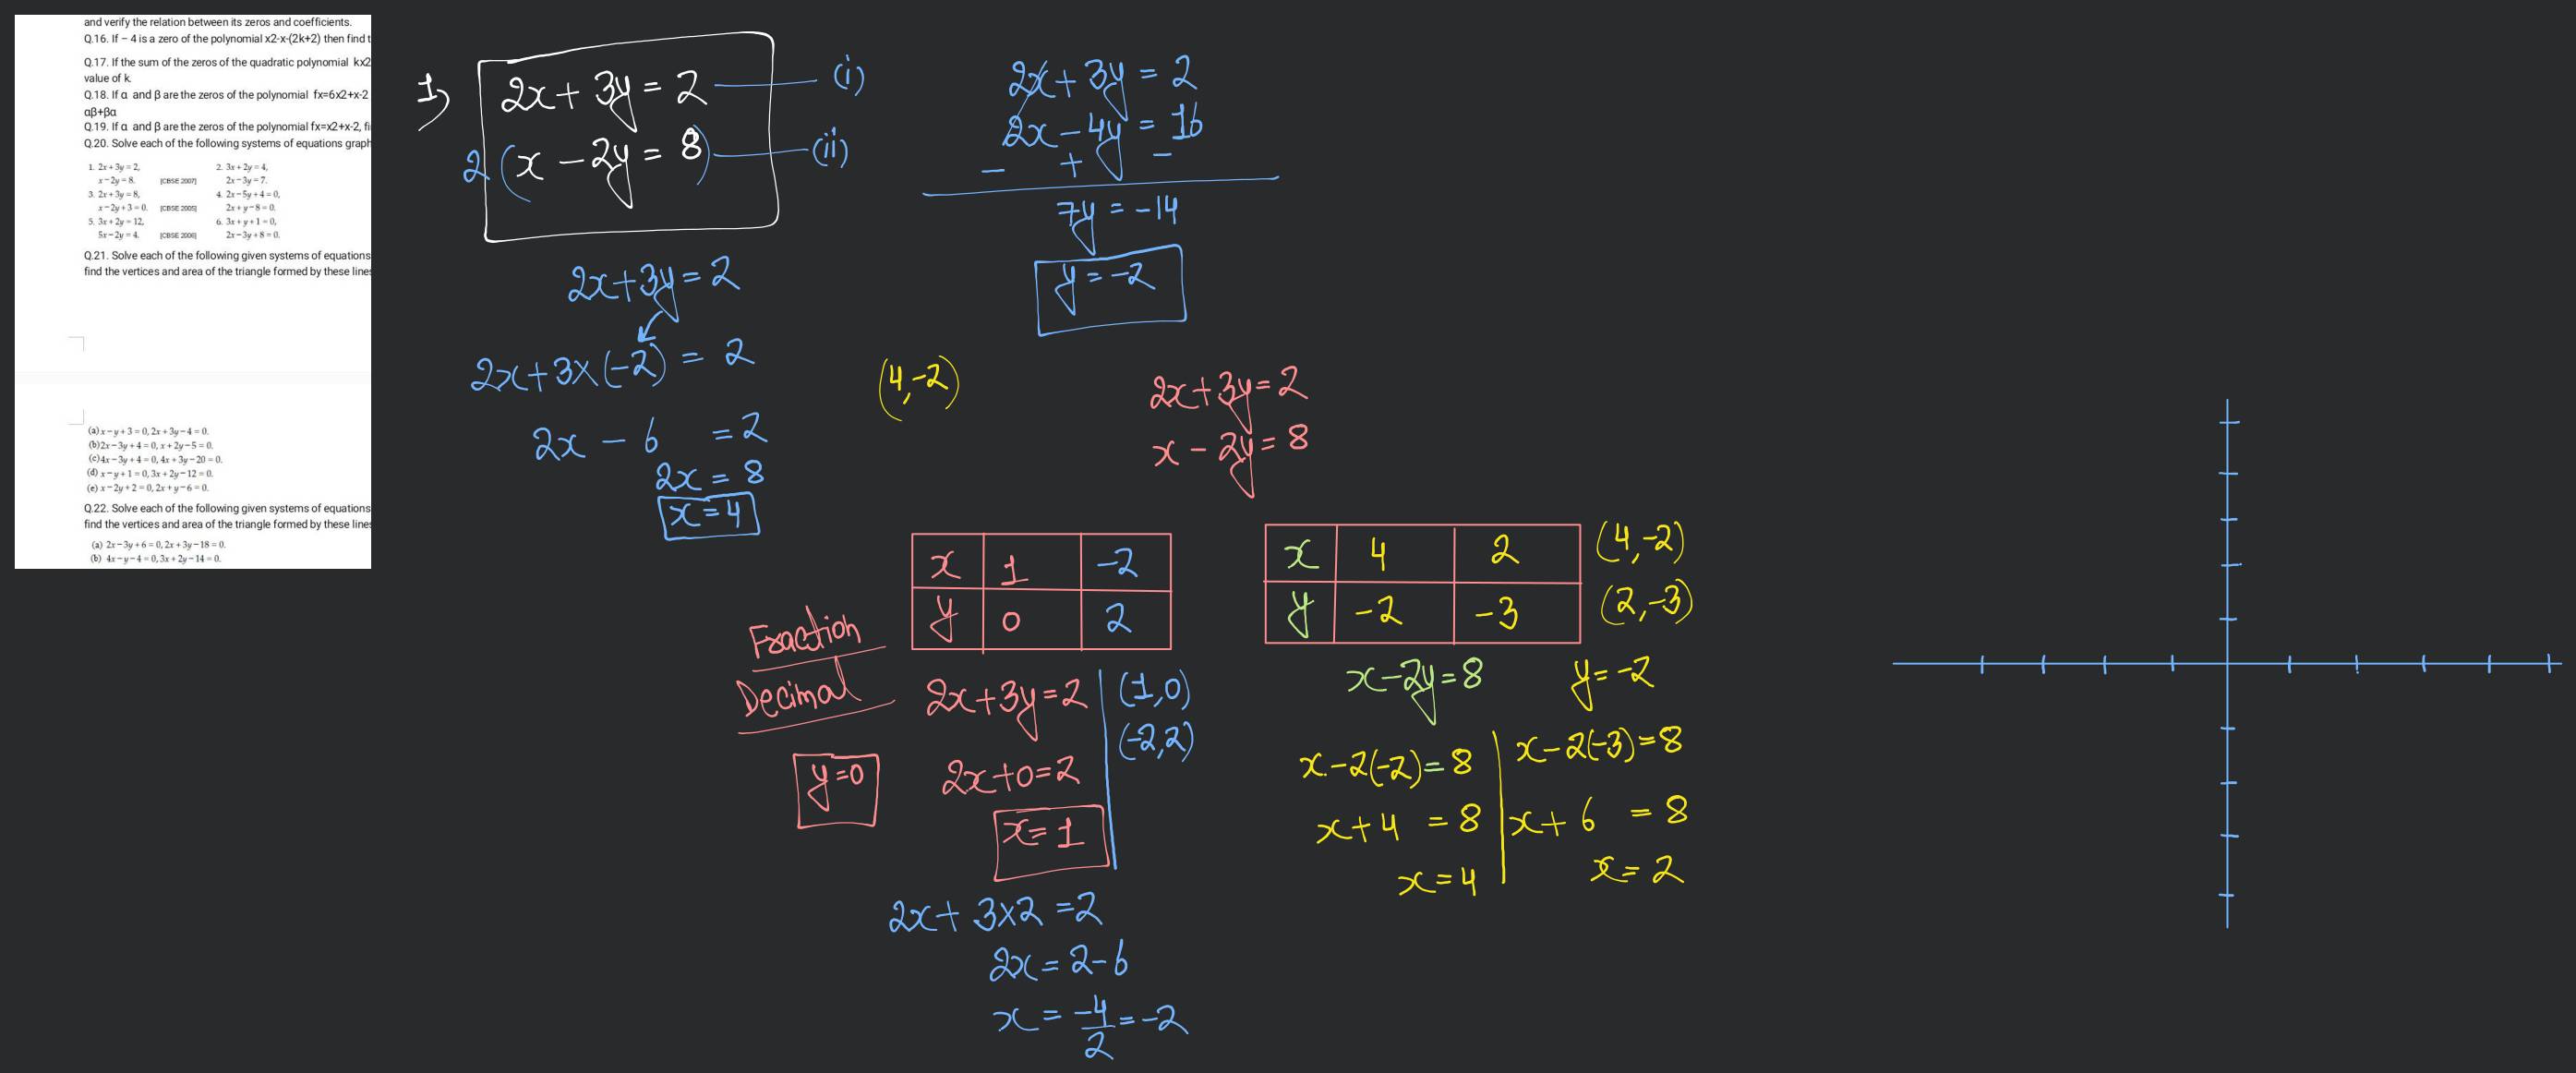 and verify the relation between its zeros and coefficients.
Q.16. If – 4 is a zero of the polynomial x2-x-(2k+2) then find t
Q.17. If the sum of the zeros of the quadratic polynomial kx2
value of k.
Q.18. If α and β are the zeros of the polynomial fx=6x2+x-2
αβ+βα
Q.19. If α and β are the zeros of the polynomial fx=x2+x-2, fi
Q.20. Solve each of the following systems of equations graph
1. 2x+3y=2, 2. 3x+2y=4,
x−2y=8. [CBSE 2007] 2x−3y=7.
3. 2x+3y=8, 4. 2x−5y+4=0,
x−2y+3=0. [CBSE 2005] 2x+y−8=0.
5. 3x+2y=12, 6. 3x+y+1=0,
5x−2y=4. [CBSE 2006] 2x−3y+8=0.
Q.21. Solve each of the following given systems of equations
find the vertices and area of the triangle formed by these lines
(a) x−y+3=0, 2x+3y−4=0.
(b) 2x−3y+4=0, x+2y−5=0.
(c) 4x−3y+4=0, 4x+3y−20=0.
(d) x−y+1=0, 3x+2y−12=0.
(e) x−2y+2=0, 2x+y−6=0.
Q.22. Solve each of the following given systems of equations
find the vertices and area of the triangle formed by these lines
(a) 2x−3y+6=0, 2x+3y−18=0.
(b) 4x−y−4=0, 3x+2y−14=0.
1)
2x + 3y = 2 (i)
2 (x − 2y = 8) (ii)
2x+3y=2
2x+3×(−2) = 2
2x − 6 = 2
2x = 8
x=4
2x + 3y = 2
2x − 4y = 16
− + −
7y = −14
y = −2
(4,−2)
2x+3y=2
x − 2y = 8
x 1 −2
y 0 2
Fraction
Decimal
2x+3y=2
(1,0)
(−2,2)
y=0
2x+0=2
x=1
2x+ 3×2 =2
2x = 2−6
x = −4/2 = −2
x 4 2
y −2 −3
(4,−2)
(2,−3)
x−2y=8
y=−2
x−2(−2)=8
x+4 =8
x=4
x−2(−3)=8
x+6 =8
x=2